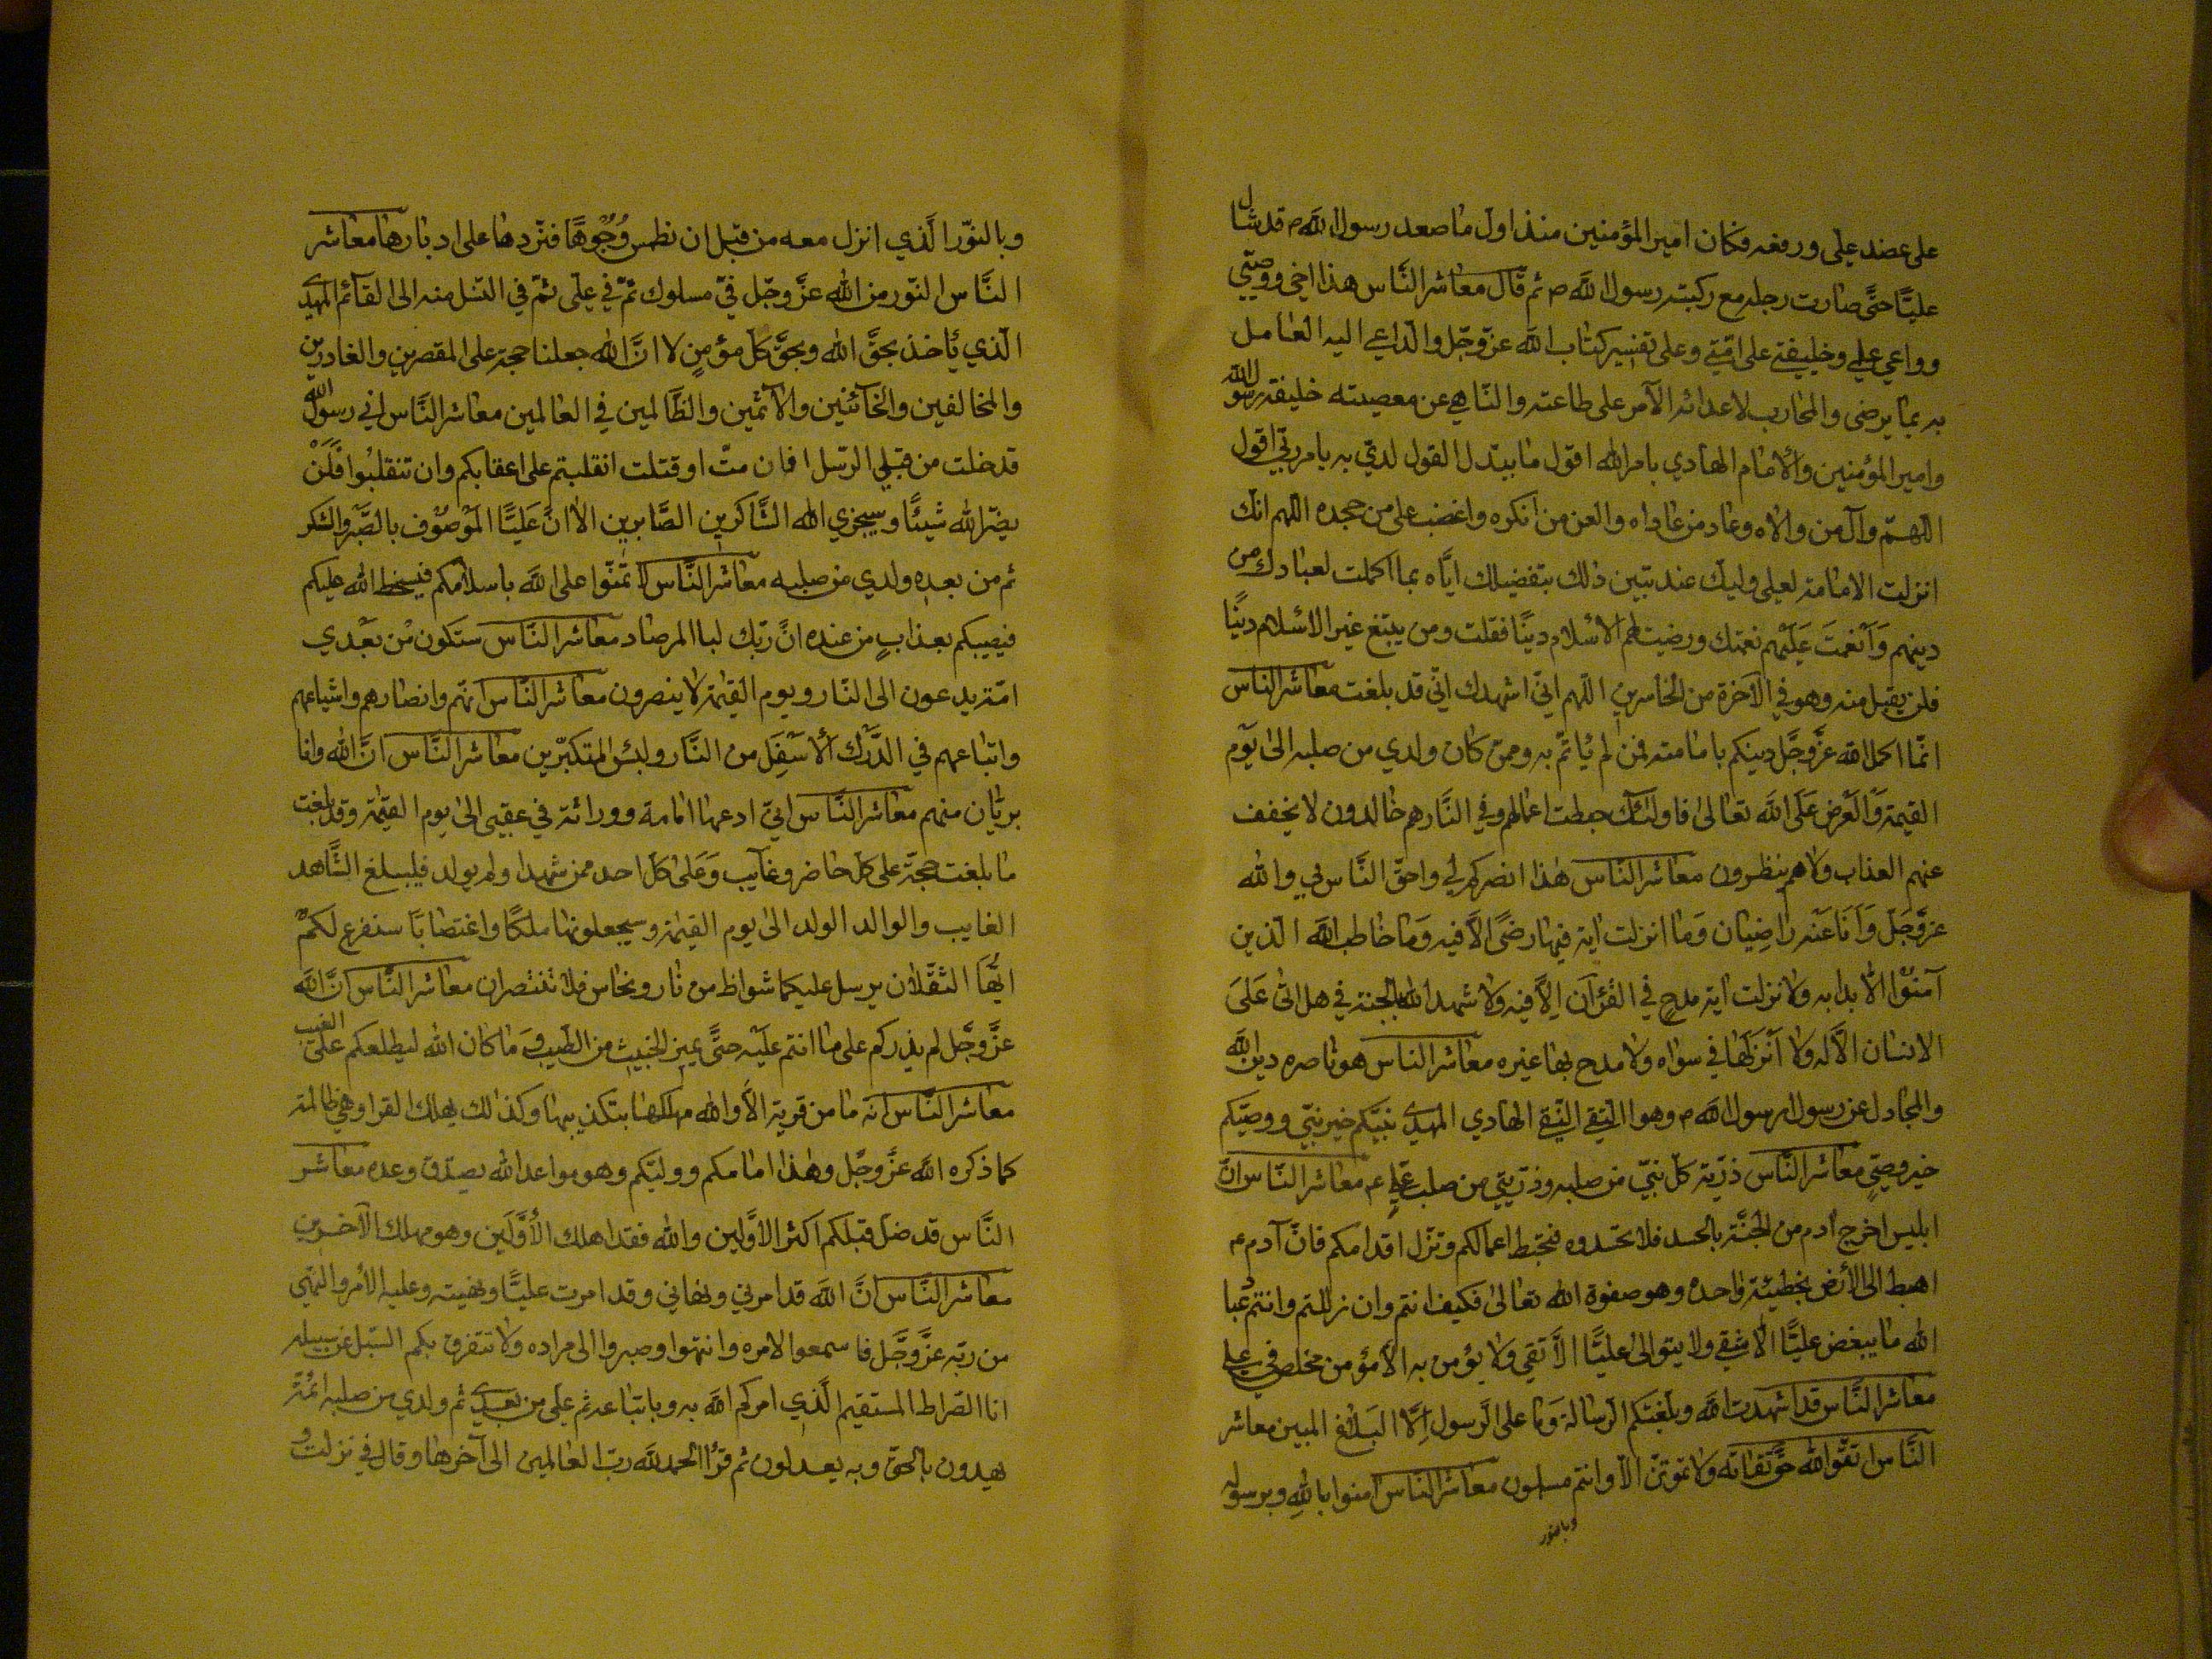 على عضد علي ورفعه وكان امير المؤمنين منذ اول ما صعد رسول الله ص قد شال
عليّا حتّى صارت رجله مع ركبته رسول الله ص ثم قال معاشر النّاس هذا اخي ووصيّي
وواعي علمي وخليفتي على امّتي وعلى تفسير كتاب الله عزّ وجّل والدّاعي اليه العامل
به بما يرضى والمحارب لاعدائه الآمر على طاعته والنّاهي عن معصيته خليفة رسول الله
وامير المؤمنين والأمام الهادي بامر الله اقول ما يبدّل القول لديّ به بامر ربّي اقول
اللّهمّ وال من والاه وعاد من عاداه والعن من انكره واغضب على من جحده اللهم انك
انزلت الامامة لعلي وليك عند تبين ذلك بتفضيلك ايّاه بما اكملت لعبادك من
دينهم وَأنعمتَ عَلَيْهم نعمتك ورضيت لهم الأسلام دينًا فقلت ومن يبتغ غير الاسلام دينًا
فلن يقبل منه وهو في الآخرة من الخاسرين اللّهم انّي اشهدك انّي قد بلغت معاشر الناس
انّما اكمل الله عزّ وجّل دينكم بامامته فمن لم يُاتمّ به وممن كان ولدي من صلبه الى يوم
القيمة وَالعَرْض عَلَى الله تعالى فاولئك حبطت اعمالهم وفي النّار هم خالدون لا يخفف
عنهم العذاب ولا هم ينظرون معاشر النّاس هذا انصركم لي واحقّ النّاس بي والله
عزّ وَجَلّ وَأنا عَنه راضِيَان وَمَا انزلت اية فيها رضًى الّا فيه وَما خاطب الله الذين
آمَنوُا الّا بدا به ولا نزلت آية مدح في القُرآن إلّا فيه ولا شهد الله بالجنة في هل اتى عَلَى
الانسان الّا له ولا أنزلَها في سواه ولا مدح بها غيره معاشر الناس هو ناصره دين الله
والمجادل عن رسول الله ص وهو التّقي النّقي الهادي المهدي نبيّكم خير نبيّ ووصيّكم
خير وصيّ معاشر النّاس ذرّية كلّ نبيّ من صلبه وذرّيتي من صلب عليّ ع معاشر النّاس انّ
ابليس اخرج ادم من الجنّة بالحسد فلا تحسدوه فتحبط اعمالكم وتزّل اقدامكم فانّ آدم ع
اهبط الى الأرض بخطيئة واحدة وهو صفوة الله تعالى فكيف انتم وان زللتم وانتم عباد
الله ما يبغض عليًّا الّا شقي ولا يتوالى عليًّا الّا تقي ولا يؤمن به الّا مؤمن مخلص في علي
معاشر النّاس قد اشهدت الله وبلّغتكم الرّسالة وَما على الرّسول إلّا البَلاغ المبين معاشر
النّاس اتّقوا الله حقّ تقاته ولا تموتنّ الّا وانتم مسلمون معاشر النّاس آمنوا بالله وبرسوله
وبالنور
وبالنوّر الّذي انزل معه من قبل ان نطمس وُجُوهًا فنردّها على ادبارها معاشر
النّاس النوّر من الله عزّ وجّل فيّ مسلوك ثمّ في علي ثمّ في النّسل منه الى القآئم المهدي
الّذي يُأخذ بحقّ الله وبحقّ كلّ مؤمنٍ لا انّ الله جعلنا حجة على المقصرين والغادرين
والمخالفين والخآئنين والآثمين والظّالمين في العالمين معاشر النّاس اني رسول الله
قد خلت من قبلي الرّسل افان متّ او قتلت انقلبتم على اعقابكم وان تنقلبُوا فَلَنْ
يضرّ الله شيئًا وسيجزي الله الشّاكرين الصّابرين الا انّ عَليًّا المَوْصُوْف بالصَّبْر والشكر
ثم من بعده ولدي من صلبه معاشر النّاس لا تمنّوا على الله باسلامكم فيسخط الله عليكم
فيصيبكم بعذابٍ من عنده انّ ربّك لبا المرصاد معاشر النّاس ستكون مْن بَعْدي
ائمّة يدعون الى النّار ويوم القيمة لا ينصرون معاشر النّاس انهّم وانصارهم واشياعهم
واتباعهم في الدّرك الأسفل من النّار ولبئس المتكبّرين معاشر النّاس انّ الله وانا
بريّان منهم معاشر النّاس انيّ ادعها امامة ووراثة في عقبي الى يوم القيمة وقد بلغت
ما بلغت حجة على كلّ حاضر وغآيب وَعَلى كلّ احد ممن شهد او لم يولد فليبلغ الشّاهد
الغايب والوالد الولد الى يوم القيمة وسيجعلونها ملكًا واغتصابًا سنفرغ لكمْ
ايُّها الثقّلان يرسل عليكما شواظ من نار ونحاس فلا تنتصران معاشر النّاس انّ الله
عزّ وجّل لم يذركم على ما انتم عليه حتّى يميز الخبيث من الطّيب وَما كان الله ليطلعكم على الغيب
معاشر النّاس انّه ما من قرية الّا والله مهلكها بتكذيبها وكذالك يهلك القرا وهي ظالمة
كما ذكره الله عزّ وجّل وهذا امامكم ووليّكم وهو مواعد الله يصدّق وعده معاشر
النّاس قد ضلّ قبلكم اكثر الاوّلين والله فقد اهلك الأوّلين وهو مهلك الآخرين
معاشر النّاس انّ الله قد امرني ونهاني وقد امرت عليًّا ونهيته وعليه الأمر والنهي
من ربّه عزّ وجّل فاسمعوا لامره وانتهوا وصيروا الى مراده ولا تتفرق بكم السّبل عن سبيله
انا الصّراط المستقيم الّذي امركم الله به وباتباعه ثم علي من بعدي ثم ولدي من صلبه ائمّة
يهدون بالحقّ وبه يعدلون ثم قرُأ الحمد لله ربّ العالمين الى آخرها وقال في نزلت و